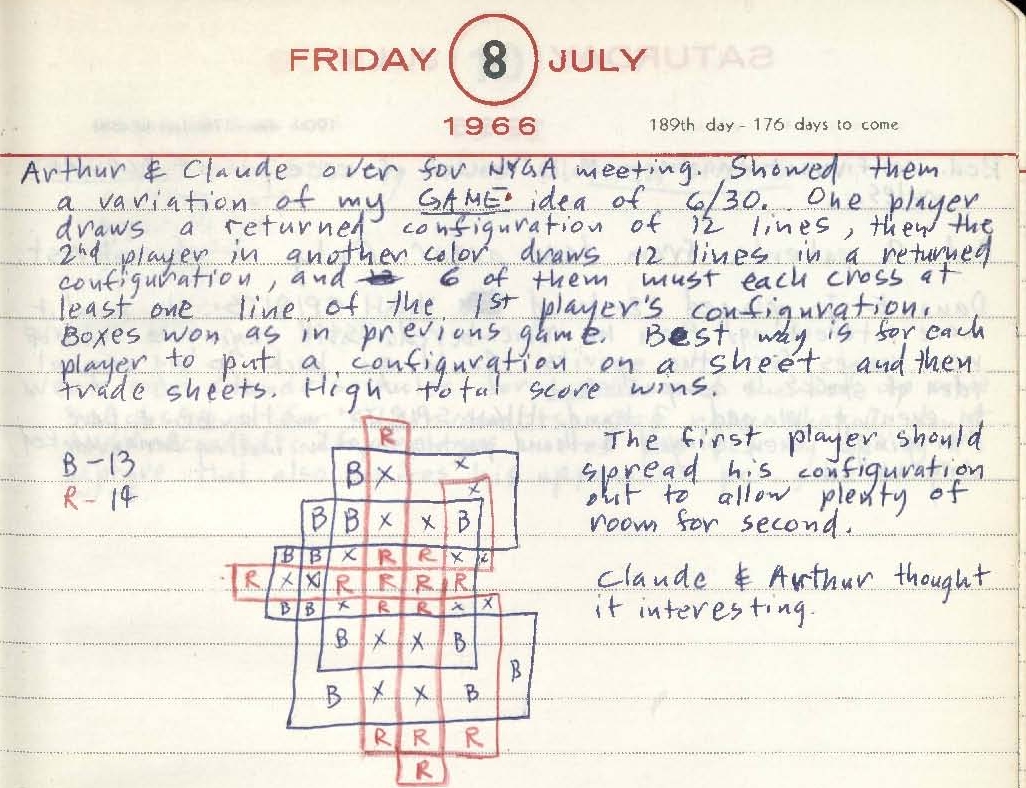 FRIDAY 8 JULY
1966
189th day - 176 days to come
Arthur & Claude over for NYGA meeting. Showed them
a variation of my GAME. idea of 6/30. One player
draws a returned configuration of 12 lines, then the
2nd player in another color draws 12 lines in a returned
configuration, and 6 of them must each cross at
least one line of the 1st player's configuration.
Boxes won as in previous game. Best way is for each
player to put a configuration on a sheet and then
trade sheets. High total score wins.
B - 13
R - 14
The first player should
spread his configuration
out to allow plenty of
room for second.
Claude & Arthur thought
it interesting.
R
B X X
X
B B X X B
B B X R R X X
R X X R R R R
B B X R R X X
B X X B
B
B X X B
R R R
R